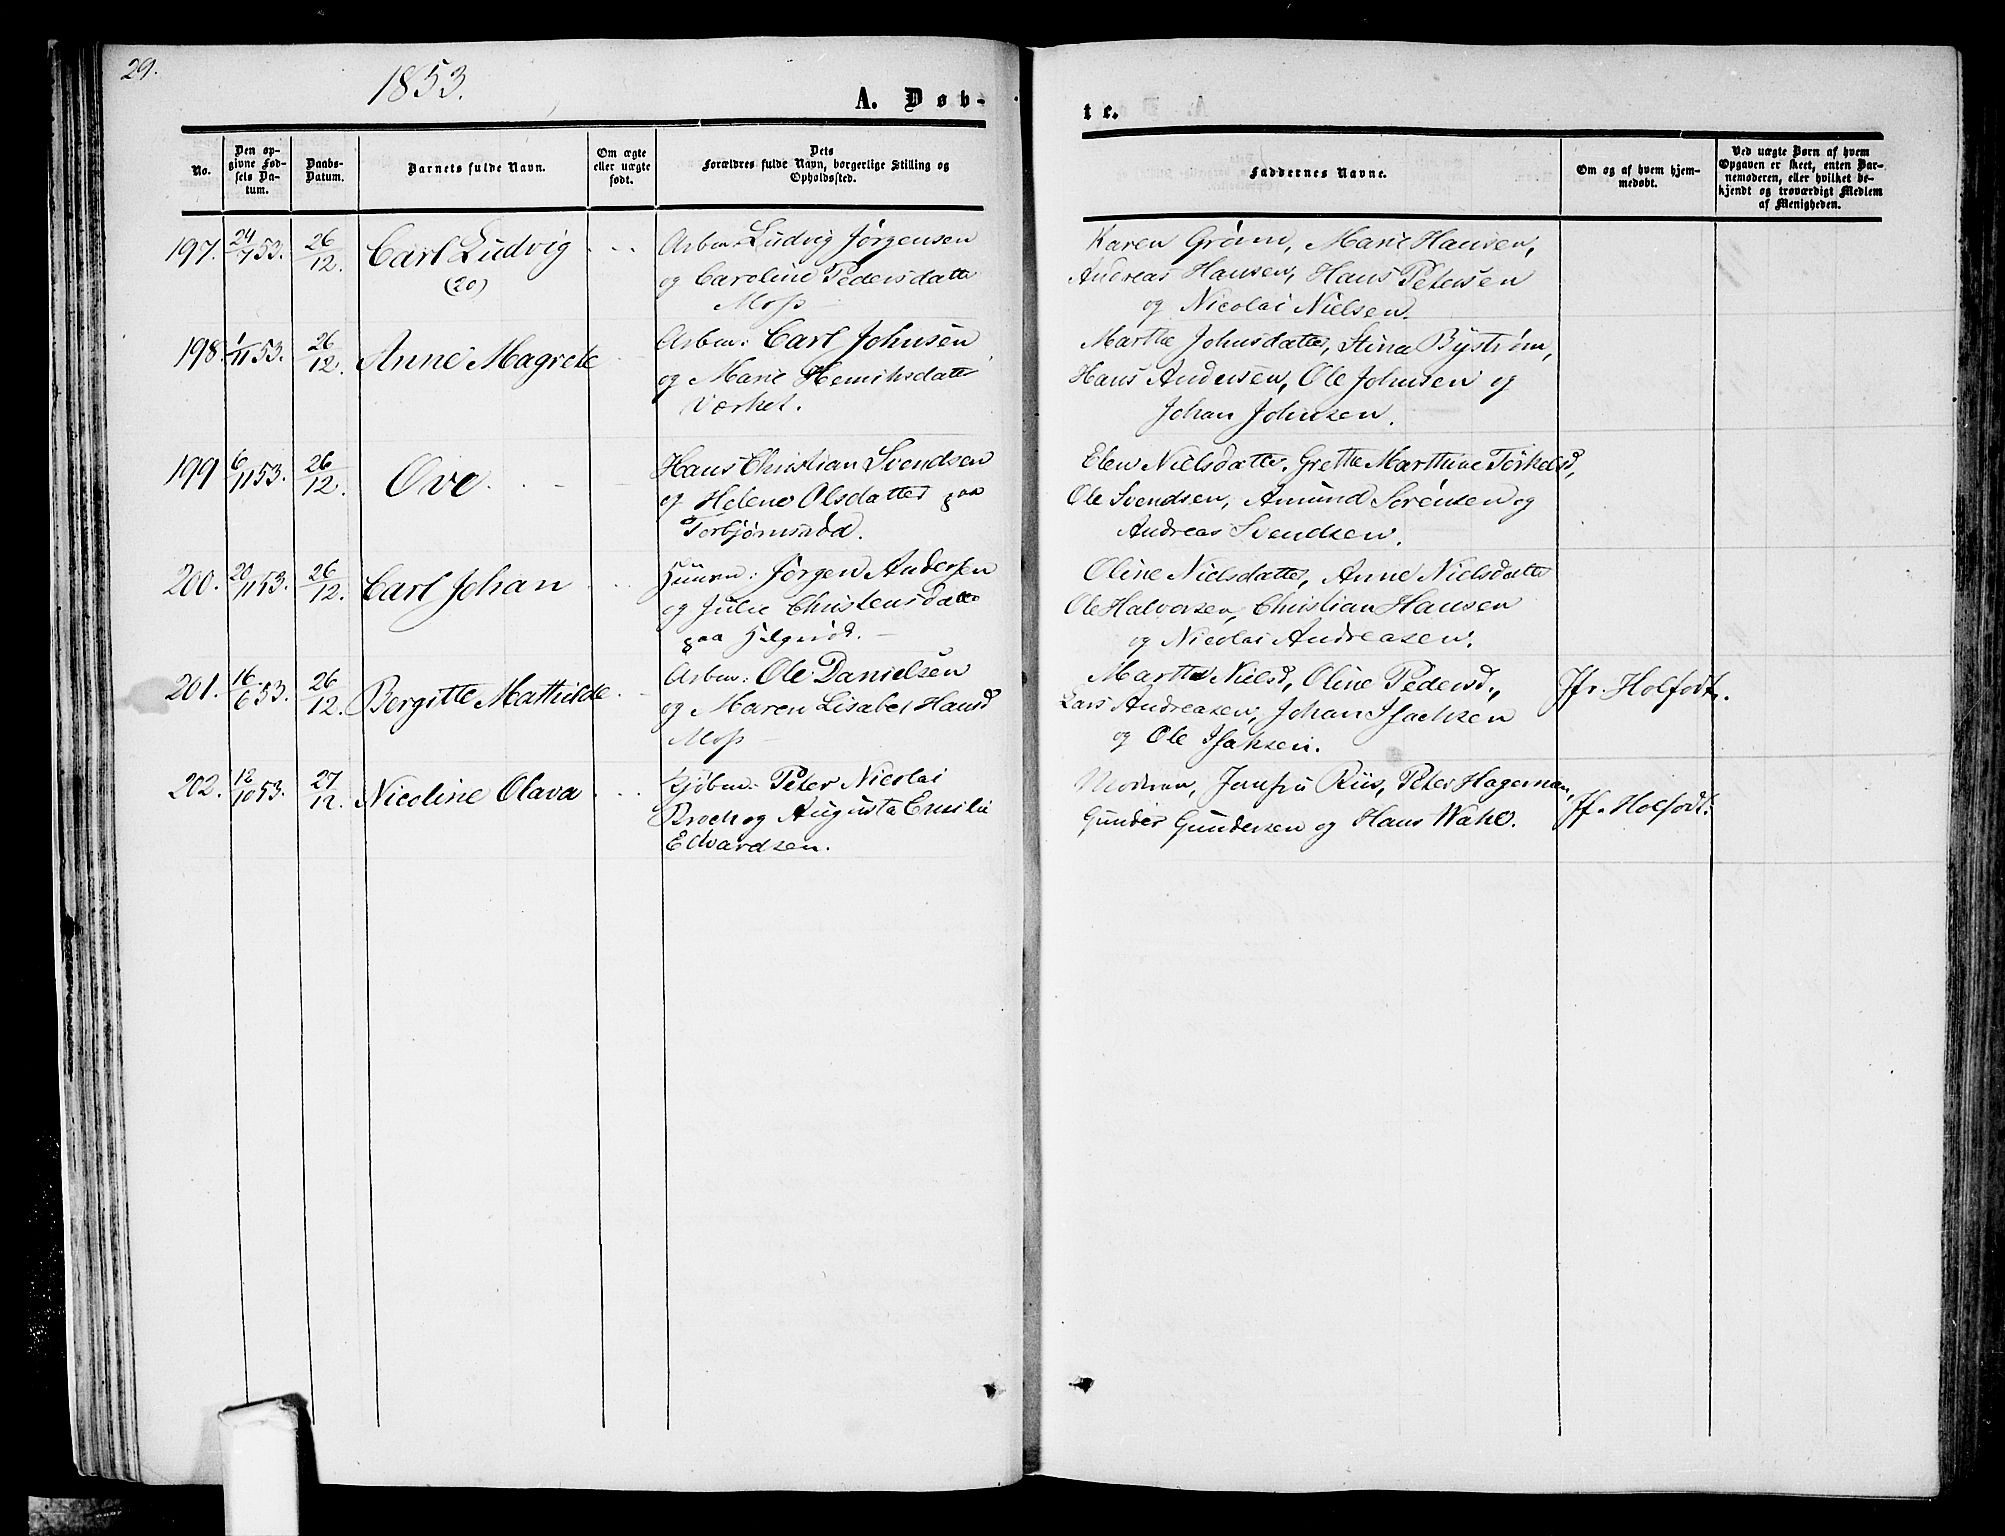 29.
1853.
A. Døb-
No.
Den op-
givne Fød-
sels Da-
tum.
Daabs-
Datum.
Barnets fulde Navn.
Om ægte
eller uægte
født.
Dets
Forældres fulde Navn, borgerlige Stilling og
Opholdssted.
197. 24/7 53. 26/12. Carl Ludvig
(20)
Arbm: Ludvig Jørgensen
og Caroline Pedersdatter
Moss
198. 1/11 53. 26/12. Anne Magrete
Arbm: Carl Johnsen
og Marie Henriksdatter
Værket.
199 6/11 53. 26/12. Ove.
Hans Christian Svendsen
og Helene Olsdatter paa
Torbjørnsrød.
200. 20/11 53. 26/12. Carl Johan
Huusm: Jørgen Andersen
og Julie Christensdatter
paa Helgerød.
201. 16/6 53. 26/12. Bergitte Mathilde
Arbm: Ole Danielsen
og Maren Lisabet Hansd
Moss
202. 12/10 53. 27/12. Nicoline Olava
Kjøbm: Peter Nicolai
Broch og Augusta Emilie
Edvardsen.
te.
Faddernes Navne.
Om og af hvem hjem-
medøbt.
Ved uægte Børn af hvem
Opgaven er skeet, enten Bar-
nemoderen, eller hvilket be-
kjendt og troværdigt Medlem
af Menigheden.
Karen Grønn, Marie Hansen,
Andreas Hansen, Hans Petersen
og Nicolai Nielsen.
Marthe Johnsdatter, Stina Byström,
Hans Andersen, Ole Johnsen og
Johan Johnsen.
Elen Nielsdatter, Grethe Marthine Torkelsd,
Ole Svendsen, Amund Sørensen og
Andreas Svendsen.
Oline Nielsdatter, Anne Nielsdatter
Ole Halvorsen, Christian Hansen
og Nicolai Andreasen.
Marthe Nielsd, Oline Pedersd.,
Lars Andreasen, Johan Isachsen
og Ole Isaksen.
Jfr. Holfodt.
Modren, Jomfru Riis, Peter Hageman,
Gunder Gundersen og Hans Wahl.
Jf. Holfodt.